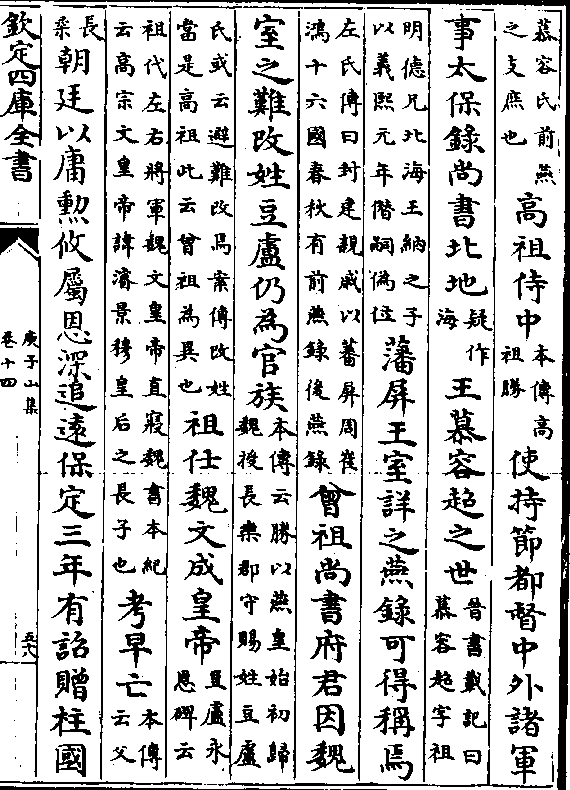 慕容氏前燕
之支庶也
高祖侍中
本傳高
祖勝
使持節都督中外諸軍
事太保錄尚書北地
疑作
海
王慕容超之世
晉書載記曰
慕容超字祖
明德兄北海王納之子
以義熙元年僭嗣偽位
藩屏王室詳之燕錄可得稱焉
左氏傳曰封建親戚以蕃屏周崔
鴻十六國春秋有前燕錄後燕錄
曾祖尚書府君因魏
室之難改姓豆盧仍為官族
本傳云勝以燕皇始初歸
魏授長樂郡守賜姓豆盧
氏或云避難改焉案傳改姓
當是高祖此云曾祖為異也
祖仕魏文成皇帝
豆盧永
恩碑云
祖代左右將軍魏文皇帝直寢魏書本紀
云高宗文皇帝諱濬景穆皇后之長子也
考早亡
本傳
云父
長
朝廷以庸勲攸屬恩深追遠保定三年有詔贈柱國
欽定四庫全書
庾子山集
卷十四